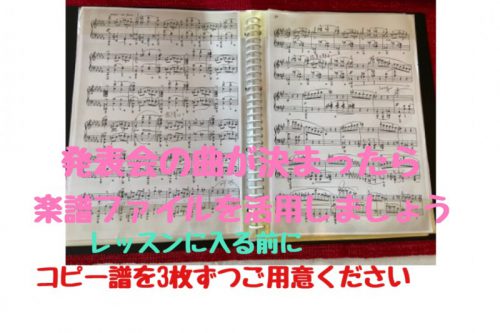 発表会の曲が決まったら
楽譜ファイルを活用しましょう
レッスンに入る前に
コピー譜を3枚ずつご用意ください